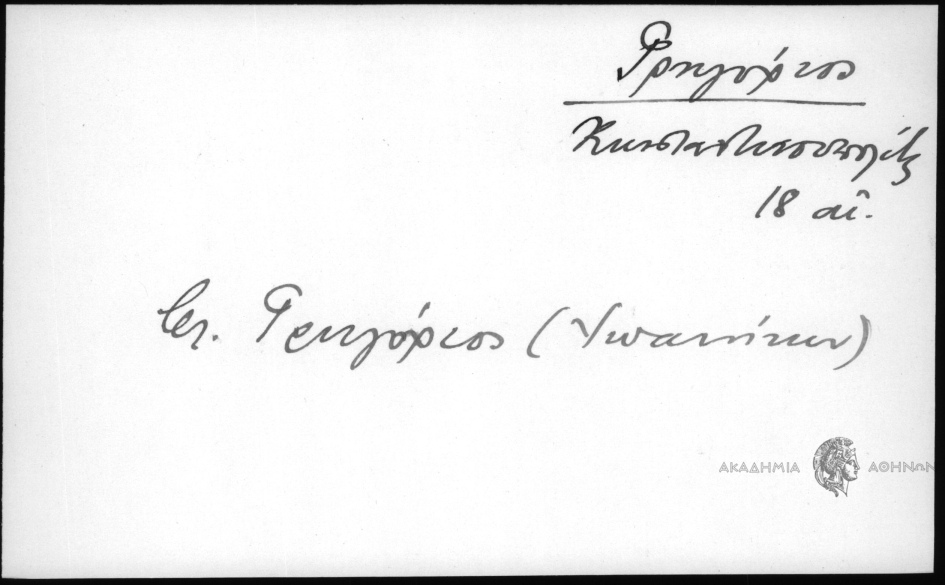 Γρηγόριος
Κωνσταντινουπολίτης
18 αἰ.
βλ. Γρηγόριος
ΑΚΑΔΗΜΙΑ ΑΘΗΝΩΝ